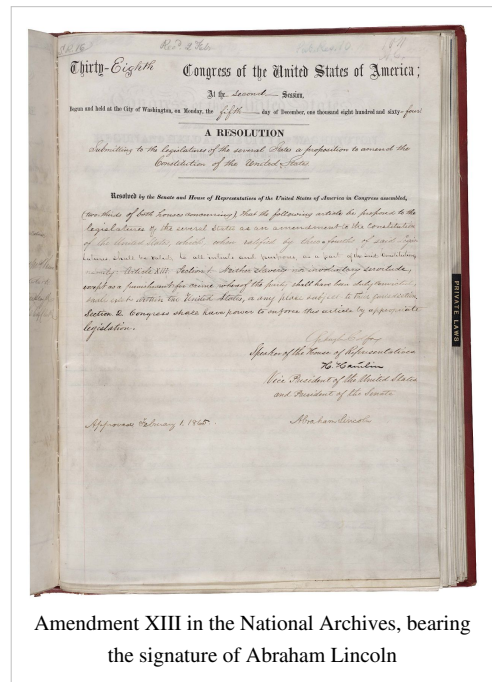 Recd 2 Feb
Thirty-Eighth Congress of the United States of America;
At the second Session,
Begun and held at the City of Washington, on Monday, the fifth day of December, one thousand eight hundred and sixty-four
A RESOLUTION
Submitting to the legislatures of the several States a proposition to amend the
Constitution of the United States
Resolved by the Senate and House of Representatives of the United States of America in Congress assembled,
(two-thirds of both houses concurring), That the following article be proposed to the
legislatures of the several States as an amendment to the Constitution
of the United States, which, when ratified by three-fourths of said legis-
latures shall be valid, to all intents and purposes, as a part of the said Constitution
namely: Article XIII. Section 1. Neither slavery nor involuntary servitude,
except as a punishment for crime whereof the party shall have been duly convicted,
shall exist within the United States, or any place subject to their jurisdiction.
Section 2. Congress shall have power to enforce this article by appropriate
legislation.
PRIVATE LAWS
Schuyler Colfax
Speaker of the House of Representatives
H. Hamlin
Vice President of the United States
and President of the Senate
Approved February 1, 1865.
Abraham Lincoln
Amendment XIII in the National Archives, bearing
the signature of Abraham Lincoln